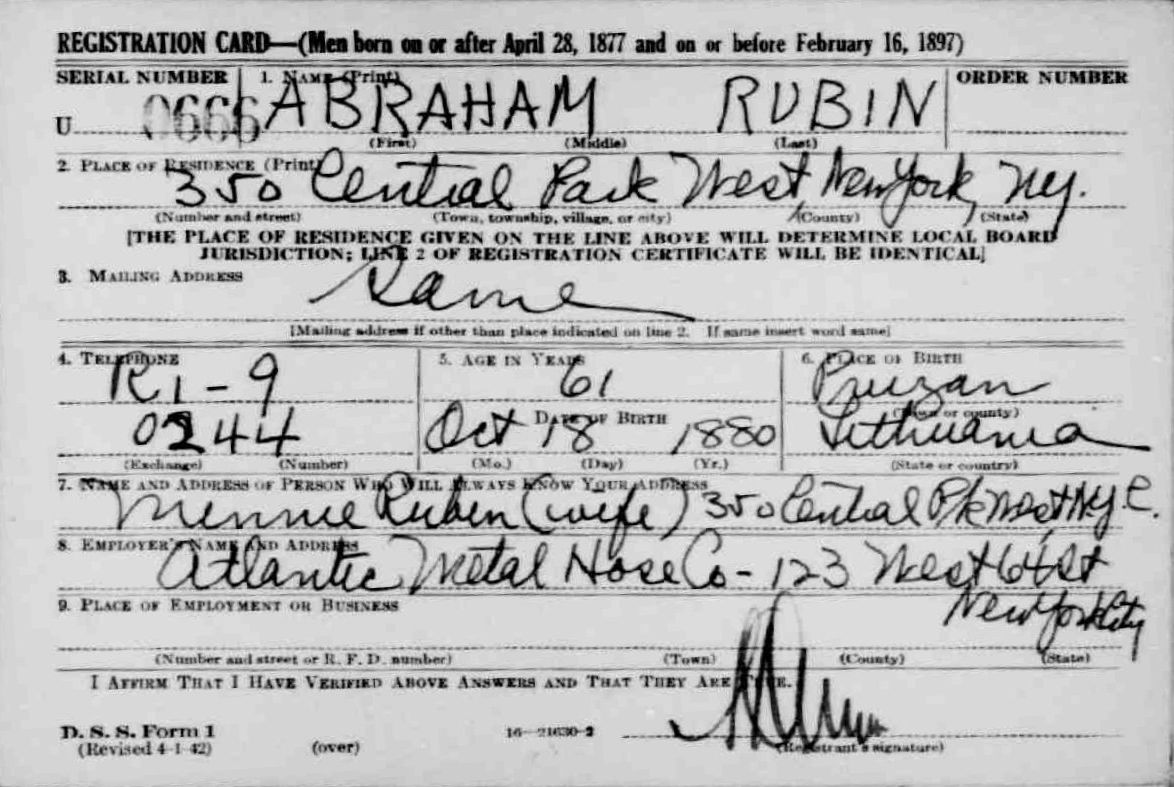 REGISTRATION CARD—(Men born on or after April 28, 1877 and on or before February 16, 1897)
SERIAL NUMBER 1. NAME (Print) ORDER NUMBER
U 0666 ABRAHAM RUBIN
(First) (Middle) (Last)
2. PLACE OF RESIDENCE (Print)
350 Central Park West, New York, Ny.
(Number and street) (Town, township, village, or city) (County) (State)
[THE PLACE OF RESIDENCE GIVEN ON THE LINE ABOVE WILL DETERMINE LOCAL BOARD
JURISDICTION; LINE 2 OF REGISTRATION CERTIFICATE WILL BE IDENTICAL]
3. MAILING ADDRESS
Same
[Mailing address if other than place indicated on line 2. If same insert word same]
4. TELEPHONE 5. AGE IN YEARS 6. PLACE OF BIRTH
RI-9 61 Pruzan
DATE OF BIRTH (Town or county)
0244 Oct 18 1880 Lithuania
(Exchange) (Number) (Mo.) (Day) (Yr.) (State or country)
7. NAME AND ADDRESS OF PERSON WHO WILL ALWAYS KNOW YOUR ADDRESS
Minnie Rubin (wife) 350 Central Pk West, Ny C.
8. EMPLOYER'S NAME AND ADDRESS
Atlantic Metal Hose Co - 123 West 64 St
9. PLACE OF EMPLOYMENT OR BUSINESS
New York City
(Number and street or R. F. D. number) (Town) (County) (State)
I AFFIRM THAT I HAVE VERIFIED ABOVE ANSWERS AND THAT THEY ARE TRUE.
D. S. S. Form 1
(Revised 4-1-42) (over) 16—21630-2
(Registrant's signature)